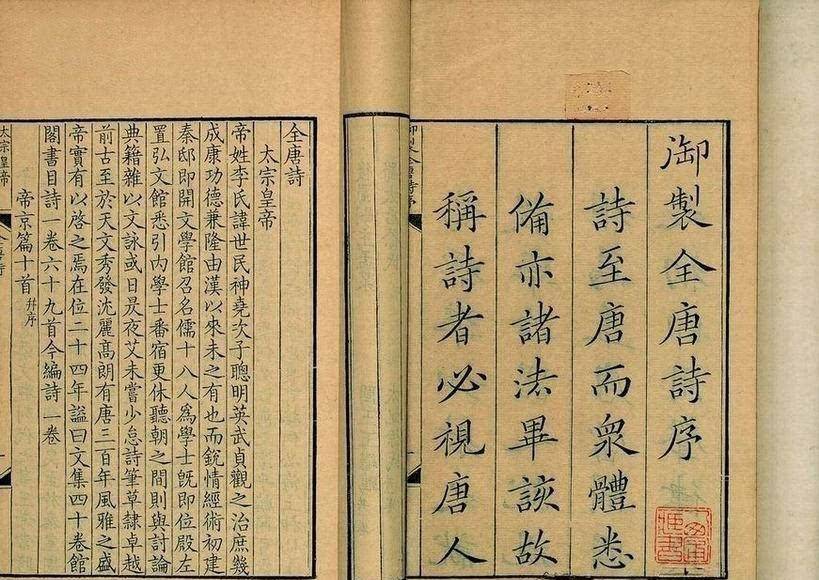 御製全唐詩序
詩至唐而衆體悉
備亦諸法畢該故
稱詩者必視唐人
全唐詩
太宗皇帝
帝姓李氏諱世民神堯次子聰明英武貞觀之治庶幾
成康功德兼隆由漢以來未之有也而銳情經術初建
秦邸即開文學館召名儒十八人爲學士既即位殿左
置弘文館悉引內學士番宿更休聽朝之間則與討論
典籍雜以文詠或日昃夜艾未嘗少怠詩筆草隸卓越
前古至於天文秀發沈麗高朗有唐三百年風雅之盛
帝實有以啓之焉在位二十四年謚曰文集四十卷館
閣書目詩一卷六十九首今編詩一卷
帝京篇十首并序
太宗皇帝